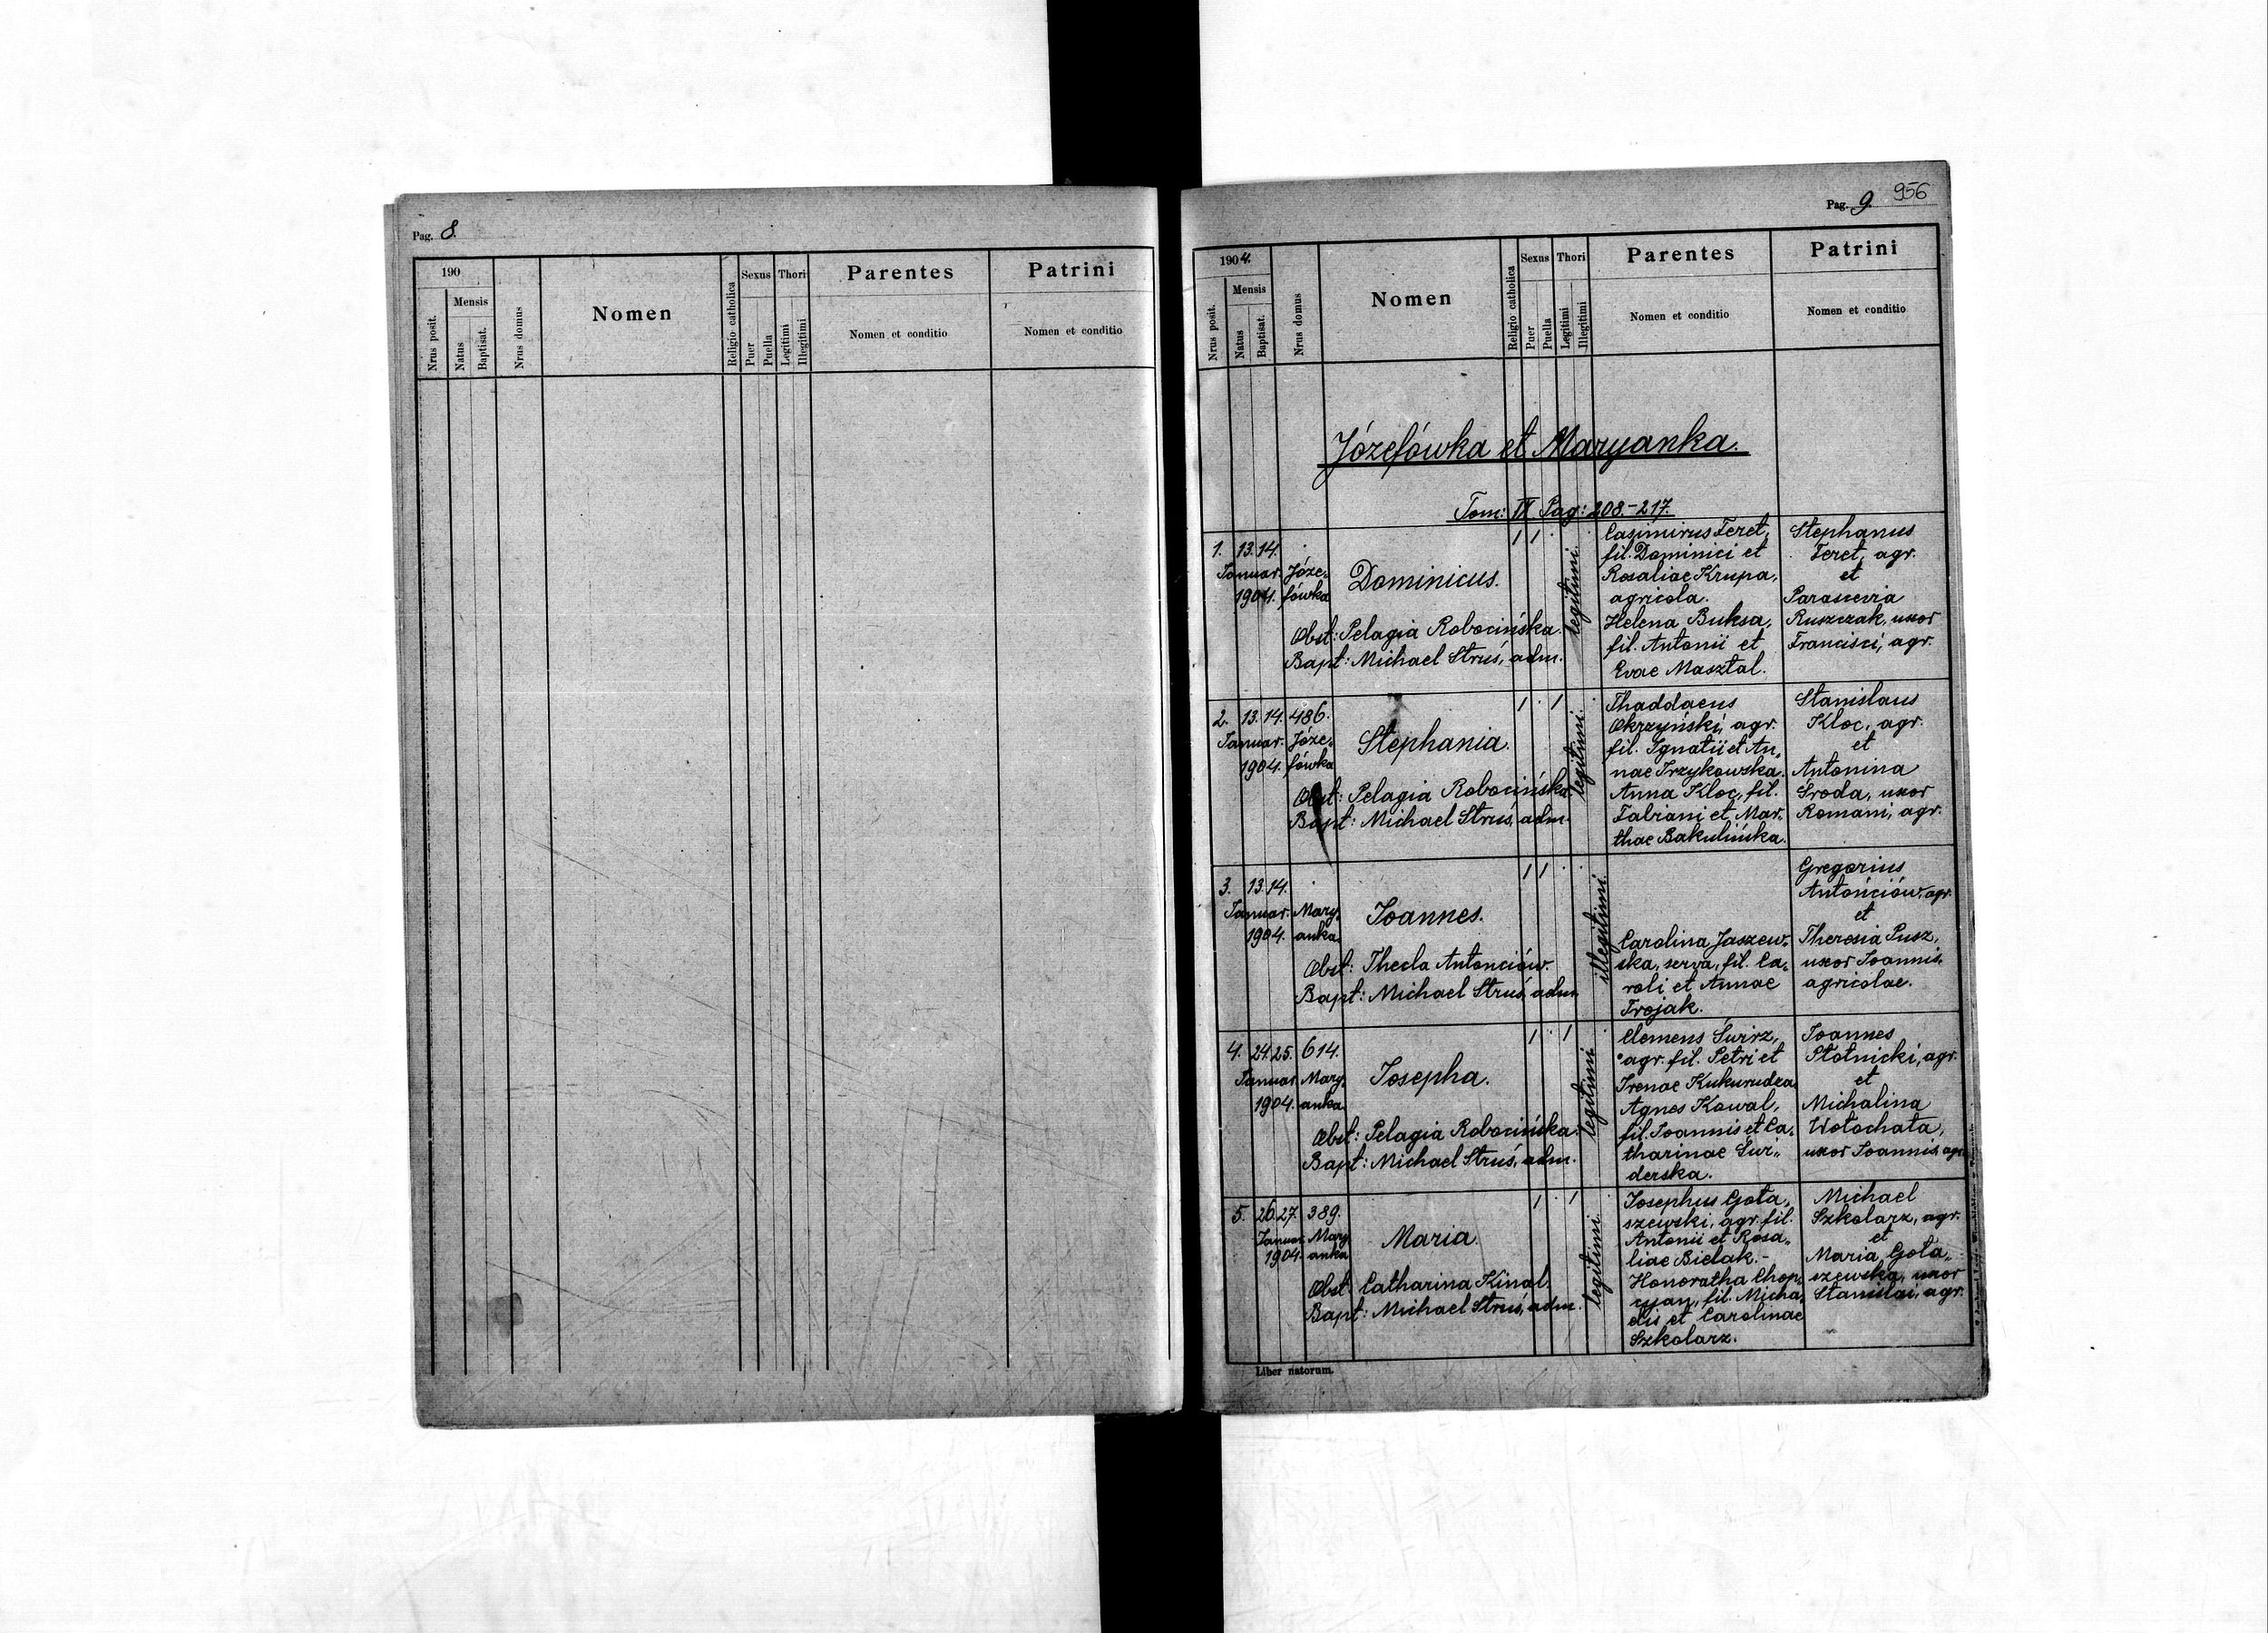 Pag. 8.
190
Nrus posit.
Mensis
Natus
Baptisat.
Nrus domus
Nomen
Religio catholica
Sexus
Puer
Puella
Thori
Legitimi
Illegitimi
Parentes
Nomen et conditio
Patrini
Nomen et conditio
Pag. 9. 956
1904.
Nrus posit.
Mensis
Natus
Baptisat.
Nrus domus
Nomen
Religio catholica
Sexus
Puer
Puella
Thori
Legitimi
Illegitimi
Parentes
Nomen et conditio
Patrini
Nomen et conditio
Józefówka et Maryanka.
Tom: IX Pag: 208.-217.
1. 13. 14.
Januar.
1904.
Józe„
fówka
Dominicus.
Obst: Pelagia Robocińska.
Bapt: Michael Struś, adm.
1 1 .
legitimi.
Casimirus Feret,
fil. Dominici et
Rosaliae Krupa,
agricola.
Helena Buksa,
fil. Antonii et
Evae Masztal.
Stephanus
Feret, agr.
et
Parascevia
Ruszczak, uxor
Francisci, agr.
2. 13. 14. 486.
Januar.
1904.
Józe„
fówka
Stephania.
Obst: Pelagia Robocińska.
Bapt: Michael Struś, adm.
1 . 1
legitimi.
Thaddaeus
Okrzyński, agr.
fil. Ignatii et An„
nae Trzykowska.
Anna Kloc, fil.
Fabiani et Mar„
thae Bakulińska.
Stanislaus
Kloc, agr.
et
Antonina
Środa, uxor
Romani, agr.
3. 13. 14.
Januar.
1904.
Mary„
anka.
Joannes.
Obst: Thecla Antonciów.
Bapt: Michael Struś, adm.
1 1 .
illegitimi.
Carolina Jaszew„
ska, serva, fil. Ca„
roli et Annae
Trojak.
Gregorius
Antonciów, agr.
et
Theresia Pusz,
uxor Joannis,
agricolae.
4. 24. 25. 614.
Januar.
1904.
Mary„
anka.
Josepha.
Obst: Pelagia Robocińska.
Bapt: Michael Struś, adm.
1 . 1
legitimi
Clemens Świrz,
agr. fil. Petri et
Irenae Kukurudza.
Agnes Kowal,
fil. Joannis et Ca„
tharinae Świ„
derska.
Joannes
Płotnicki, agr.
et
Michalina
Wołochata,
uxor Joannis, agr.
5. 26. 27. 389.
Januar.
1904.
Mary„
anka
Maria.
Obst: Catharina Kinal.
Bapt: Michael Struś, adm.
1 . 1
legitimi.
Josephus Goła„
szewski, agr. fil.
Antonii et Rosa„
liae Bielak.-
Honoratha Chop„
cyan, fil. Micha„
elis et Carolinae
Szkolarz.
Michael
Szkolarz, agr.
et
Maria Goła„
szewska, uxor
Stanislai, agr.
Liber natorum.